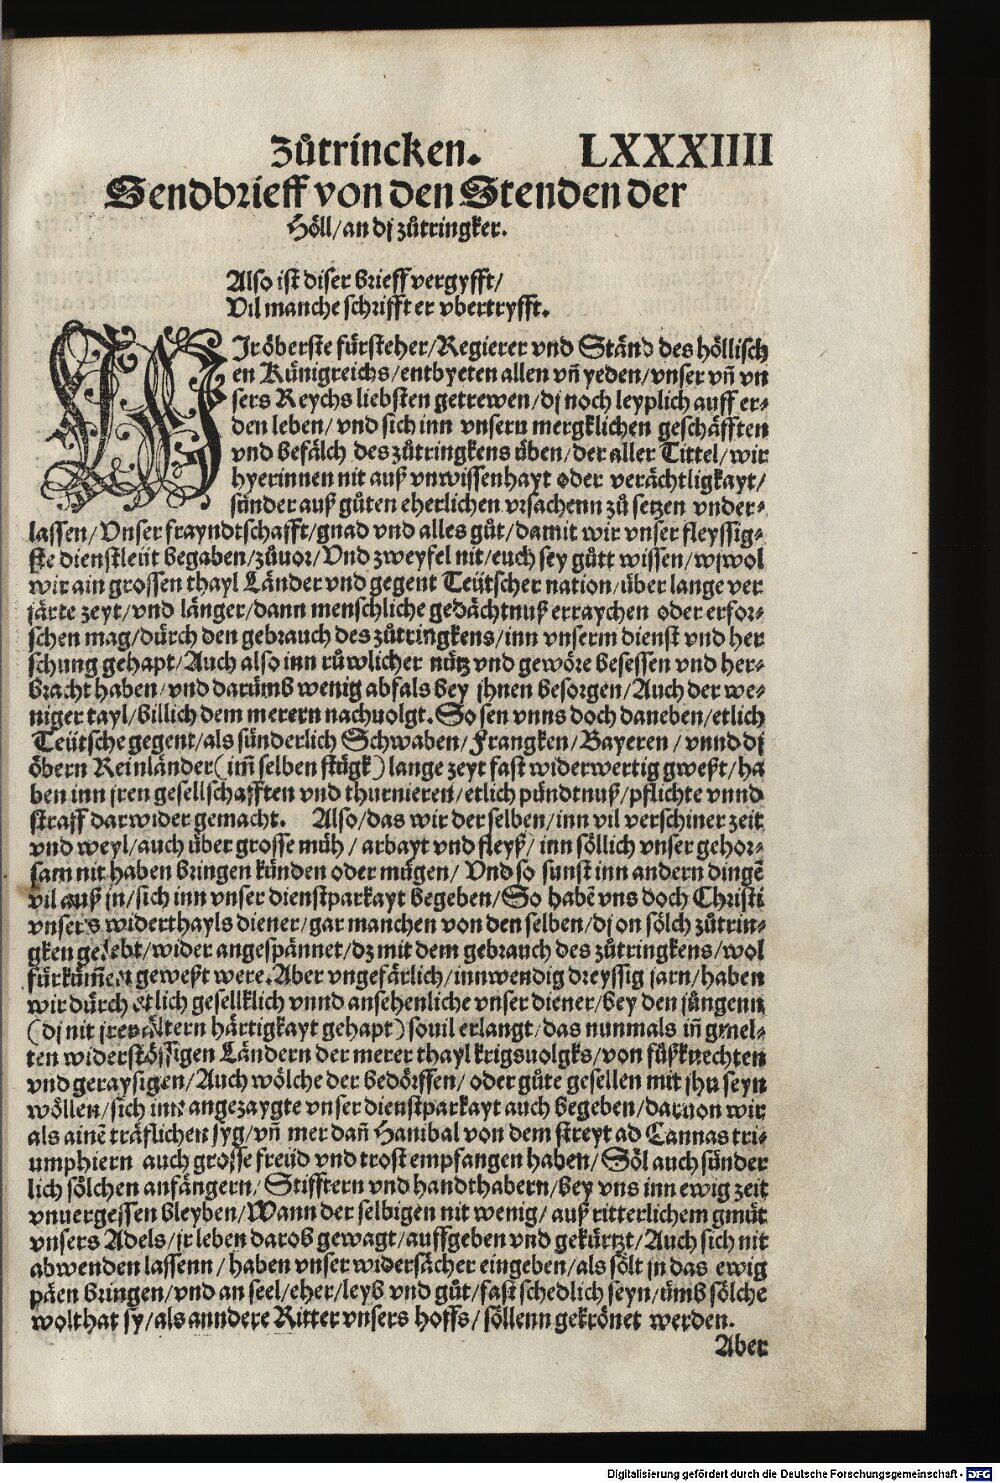 Zůtrincken. LXXXIIII
Sendbrieff von den Stenden der
Höll/ an dj zůtringker.
Also ist diser brieff vergyfft/
Vil manche schrifft er vbertryfft.
WIr öberste fürsteher/ Regierer vnd Ständ des höllisch
en Künigreichs/ entbyeten allen vñ yeden/ vnser vñ vn
sers Reychs liebsten getrewen/ dj noch leyplich auff er⸗
den leben/ vnd sich inn vnsern mergklichen geschäfften
vnd befälch des zůtringkens üben/ der aller Tittel/ wir
hyerinnen nit auß vnwissenhayt oder verächtligkayt/
sünder auß gůten eherlichen vrsachenn zů setzen vnder⸗
lassen/ Vnser frayndtschafft/ gnad vnd alles gůt/ damit wir vnser fleyssig⸗
ste dienstleüt begaben/ zůuor/ Vnd zweyfel nit/ euch sey gůtt wissen/ wjwol
wir ain grossen thayl Länder vnd gegent Teütscher nation/ über lange ver
järte zeyt/ vnd länger/ dann menschliche gedächtnuß erraychen oder erfor⸗
schen mag/ dürch den gebrauch des zůtringkens/ inn vnserm dienst vnd her
schung gehapt/ Auch also inn růwlicher nütz vnd gewöre besessen vnd her⸗
bracht haben/ vnd darümb wenig abfals bey jhnen besorgen/ Auch der we⸗
niger tayl/ billich dem merern nachuolgt. So sen vnns doch daneben/ etlich
Teütsche gegent/ als sünderlich Schwaben/ Frangken/ Bayeren/ vnnd dj
öbern Reinländer (im̃ selben stügk) lange zeyt fast widerwertig gweßt/ ha
ben inn jren gesellschafften vnd thurnieren/ etlich pündtnuß/ pflichte vnnd
straff darwider gemacht. Also/ das wir der selben/ inn vil verschiner zeit
vnd weyl/ auch über grosse müh/ arbayt vnd fleyß/ inn söllich vnser gehor⸗
sam nit haben bringen künden oder mügen/ Vnd so sunst inn andern dingē
vil auß jn/ sich inn vnser dienstparkayt begeben/ So habē vns doch Christi
vnsers widerthayls diener/ gar manchen von den selben/ dj on sölch zůtrin⸗
gken gelebt/ wider angespännet/ dz mit dem gebrauch des zůtringkens/ wol
fürküm̃en geweßt were. Aber vngefärlich/ innwendig dreyssig jarn/ haben
wir dürch etlich gesellklich vnnd ansehenliche vnser diener/ bey den jüngenn
(dj nit jrer ältern härtigkayt gehapt) souil erlangt/ das nunmals in̄ gmel⸗
ten widerstössigen Ländern der merer thayl krigsuolgks/ von fůßknechten
vnd geraysigen/ Auch wölche der bedörffen/ oder gůte gesellen mit jhn seyn
wöllen/ sich inn angezaygte vnser dienstparkayt auch begeben/ daruon wir
als ainē träflichen syg/ vñ mer dañ Hanibal von dem streyt ad Cannas tri⸗
umphiern auch grosse freüd vnd trost empfangen haben/ Söl auch sünder
lich sölchen anfängern/ Stifftern vnd handthabern/ bey vns inn ewig zeit
vnuergessen bleyben/ Wann der selbigen nit wenig/ auß ritterlichem gmüt
vnsers Adels/ jr leben darob gewagt/ auffgeben vnd gekürtzt/ Auch sich nit
abwenden lassenn/ haben vnser widersächer eingeben/ als sölt jn das ewig
päen bringen/ vnd an seel/ eher/ leyb vnd gůt/ fast schedlich seyn/ ümb sölche
wolthat sy/ als anndere Ritter vnsers hoffs/ söllenn gekrönet werden.
Aber
Digitalisierung gefördert durch die Deutsche Forschungsgemeinschaft - DFG